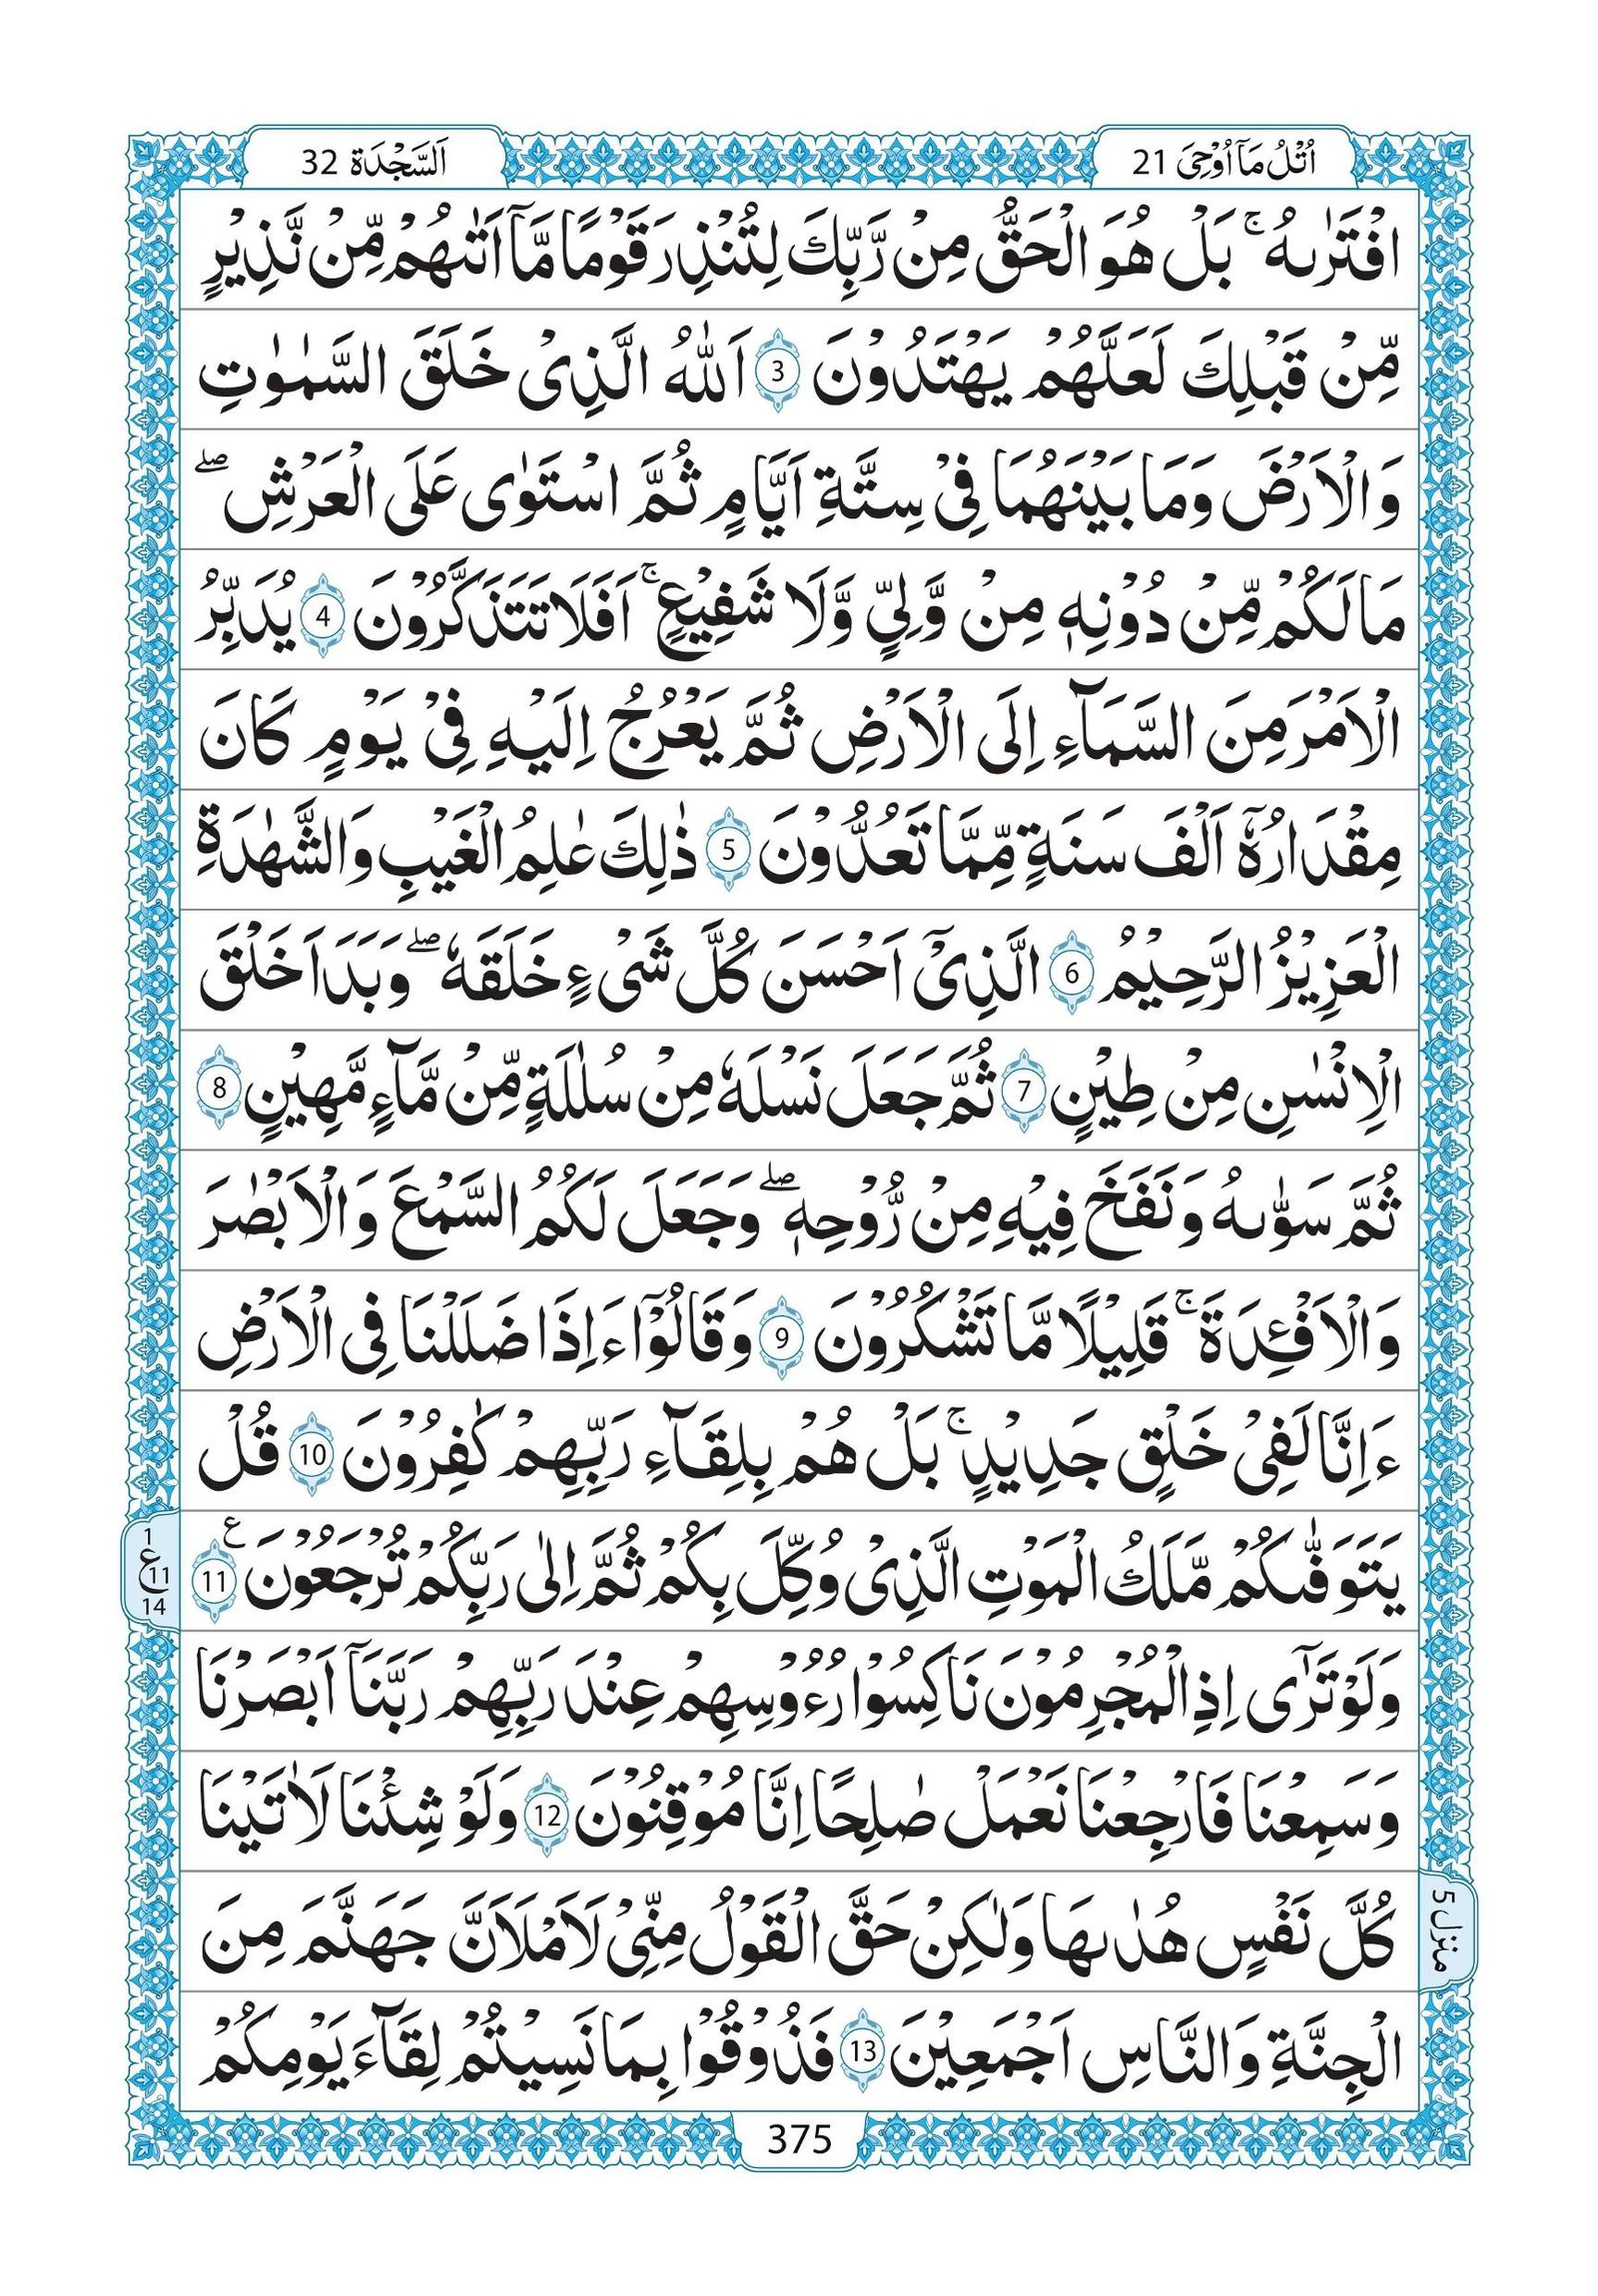 اُتْلُ مَآ اُوْحِىَ 21
اَلسَّجْدَة 32
افْتَرٰىهُ ۚ بَلْ هُوَ الْحَقُّ مِنْ رَّبِّكَ لِتُنْذِرَ قَوْمًا مَّآ اَتٰىهُمْ مِّنْ نَّذِيْرٍ
مِّنْ قَبْلِكَ لَعَلَّهُمْ يَهْتَدُوْنَ 3 اَللّٰهُ الَّذِىْ خَلَقَ السَّمٰوٰتِ
وَالْاَرْضَ وَمَا بَيْنَهُمَا فِىْ سِتَّةِ اَيَّامٍ ثُمَّ اسْتَوٰى عَلَى الْعَرْشِ ۖ
مَا لَكُمْ مِّنْ دُوْنِهٖ مِنْ وَّلِىٍّ وَّلَا شَفِيْعٍ ۚ اَفَلَا تَتَذَكَّرُوْنَ 4 يُدَبِّرُ
الْاَمْرَ مِنَ السَّمَآءِ اِلَى الْاَرْضِ ثُمَّ يَعْرُجُ اِلَيْهِ فِىْ يَوْمٍ كَانَ
مِقْدَارُهٗٓ اَلْفَ سَنَةٍ مِّمَّا تَعُدُّوْنَ 5 ذٰلِكَ عٰلِمُ الْغَيْبِ وَالشَّهٰدَةِ
الْعَزِيْزُ الرَّحِيْمُ 6 الَّذِىْٓ اَحْسَنَ كُلَّ شَىْءٍ خَلَقَهٗ ۖ وَبَدَاَ خَلْقَ
الْاِنْسٰنِ مِنْ طِيْنٍ 7 ثُمَّ جَعَلَ نَسْلَهٗ مِنْ سُلٰلَةٍ مِّنْ مَّآءٍ مَّهِيْنٍ 8
ثُمَّ سَوّٰىهُ وَنَفَخَ فِيْهِ مِنْ رُّوْحِهٖ ۖ وَجَعَلَ لَكُمُ السَّمْعَ وَالْاَبْصٰرَ
وَالْاَفْئِدَةَ ۚ قَلِيْلًا مَّا تَشْكُرُوْنَ 9 وَقَالُوْٓا ءَاِذَا ضَلَلْنَا فِى الْاَرْضِ
ءَاِنَّا لَفِىْ خَلْقٍ جَدِيْدٍ ۚ بَلْ هُمْ بِلِقَآءِ رَبِّهِمْ كٰفِرُوْنَ 10 قُلْ
يَتَوَفّٰىكُمْ مَّلَكُ الْمَوْتِ الَّذِىْ وُكِّلَ بِكُمْ ثُمَّ اِلٰى رَبِّكُمْ تُرْجَعُوْنَ 11 ع
1
ع 11
14
وَلَوْ تَرٰٓى اِذِ الْمُجْرِمُوْنَ نَاكِسُوْا رُءُوْسِهِمْ عِنْدَ رَبِّهِمْ رَبَّنَآ اَبْصَرْنَا
وَسَمِعْنَا فَارْجِعْنَا نَعْمَلْ صٰلِحًا اِنَّا مُوْقِنُوْنَ 12 وَلَوْ شِئْنَا لَاٰتَيْنَا
كُلَّ نَفْسٍ هُدٰىهَا وَلٰكِنْ حَقَّ الْقَوْلُ مِنِّىْ لَاَمْلَاَنَّ جَهَنَّمَ مِنَ
منزل 5
الْجِنَّةِ وَالنَّاسِ اَجْمَعِيْنَ 13 فَذُوْقُوْا بِمَا نَسِيْتُمْ لِقَآءَ يَوْمِكُمْ
375